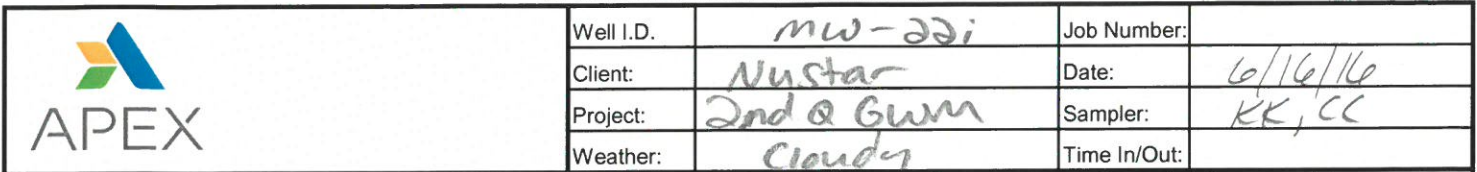 Well I.D. MW-22i Job Number:
Client: Nustar Date: 6/16/16
Project: 2nd Q GWM Sampler: KK, CC
Weather: Cloudy Time In/Out:
APEX